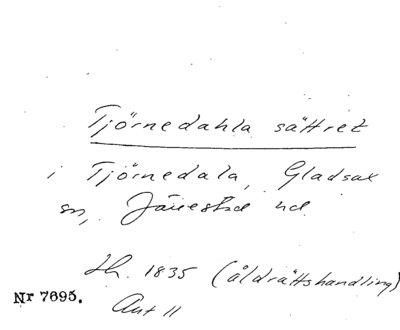 Tjörnedahla sättret
i Tjörnedala, Gladsax
sn, Järrestad hd
Hh. 1835 (åldrättshandling)
Nr 7695.
Ant 11